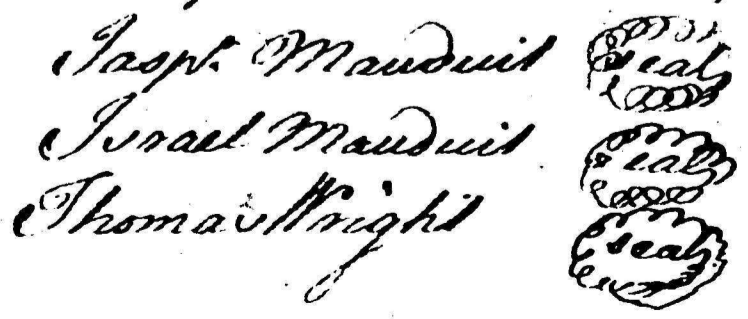 Jaspr. Mauduit seal
Israel Mauduit seal
Thomas Wright seal